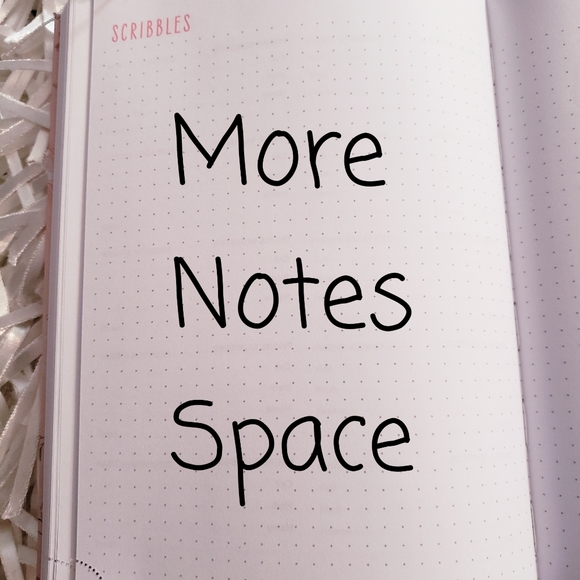 SCRIBBLES
More
Notes
Space